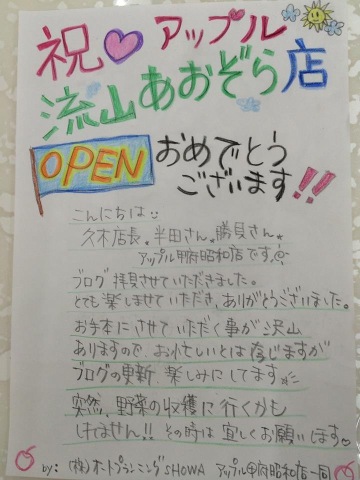 祝♡アップル
流山あおぞら店
OPEN おめでとう
ございます!!
こんにちは
久木店長。半田さん。勝貝さん。
アップル甲府昭和店です。
ブログ拝見させていただきました。
とても楽しませていただき、ありがとうございました。
お手本にさせていただく事が沢山
ありますので、お忙しいとは存じますが
ブログの更新、楽しみにしてます。
突然、野菜の収穫に行くかも
しれません!! その時は宜しくお願いします
by: (株)オートプランニングSHOWA アップル甲府昭和店一同